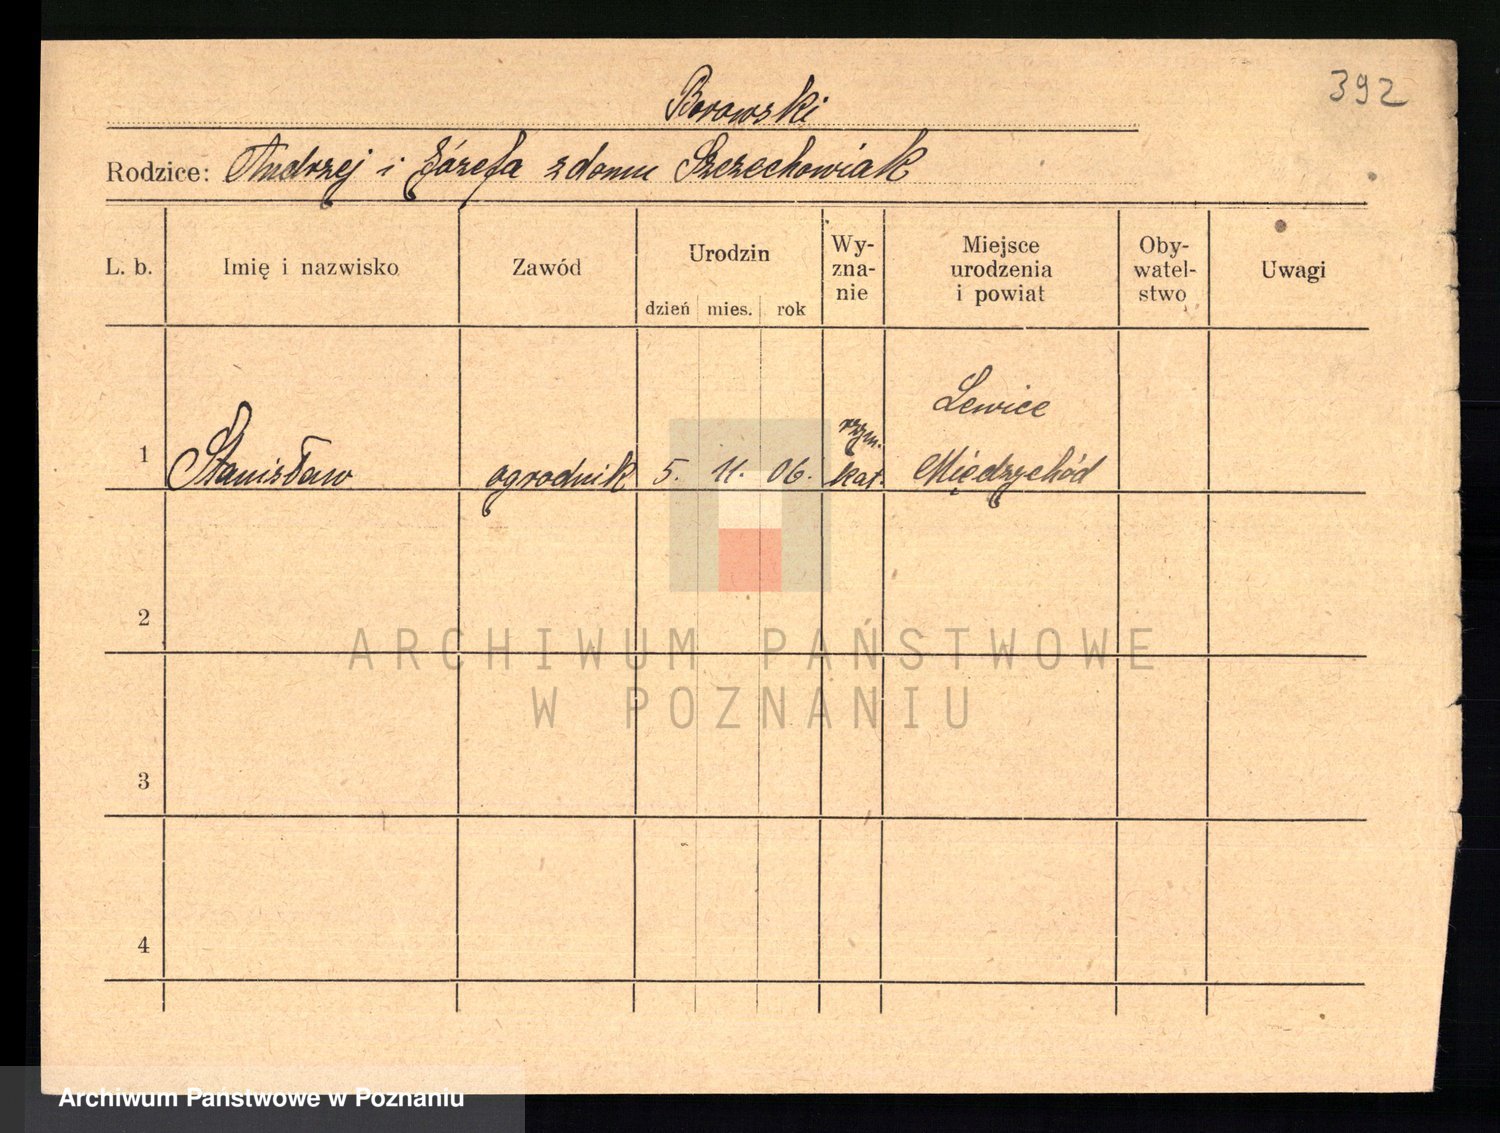 392
Borowski
Rodzice: Andrzej i Józefa z domu Szczechowiak
L. b. Imię i nazwisko Zawód Urodzin dzień mies. rok Wy-zna-nie Miejsce urodzenia i powiat Oby-watel-stwo Uwagi
1 Stanisław ogrodnik 5. 11. 06. rzym. kat. Lewice Międzychód
2
3
4
ARCHIWUM PAŃSTWOWE
W POZNANIU
Archiwum Państwowe w Poznaniu